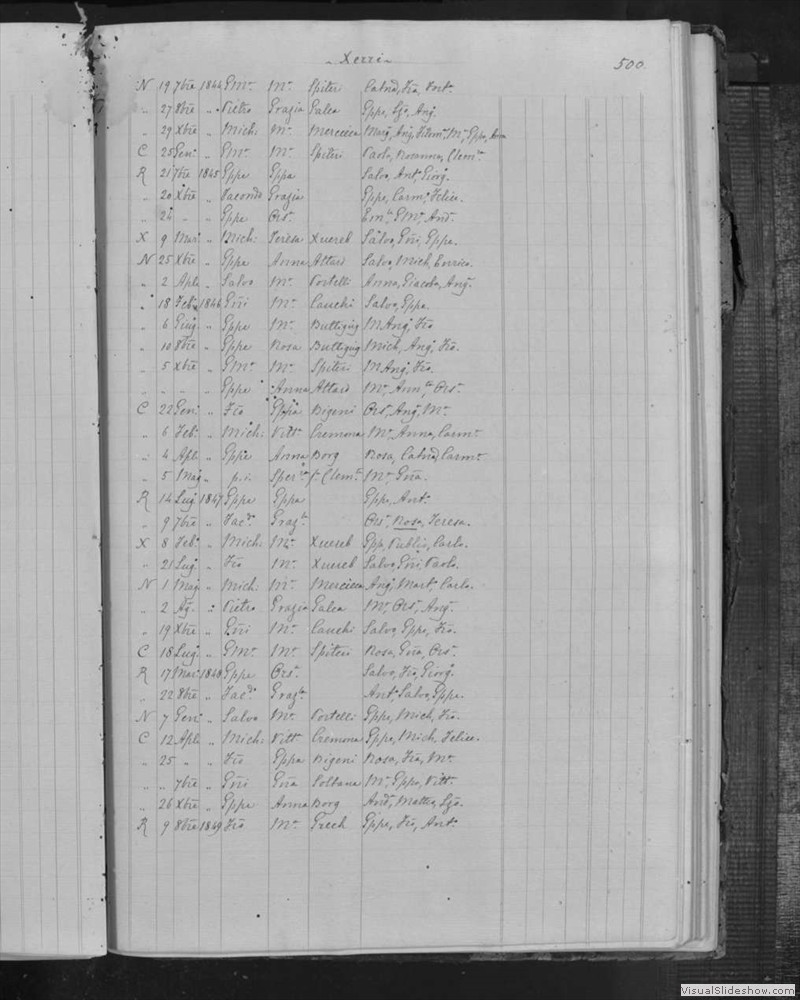 Xerri
500
N 19 7bre 1844 Gmo Ma Spiteri Catnd, Fra, Anto
" 27 8bre " Pietro Grazia Galea Gppe, Lzo, Ang.
" 29 Xbre " Mich: Ma Mercieca Marg, Ang, Ma, Gppe,
C 25 Gen: " Gmo Ma Spiteri Paolo, Rosanna, Clema
R 21 7bre 1845 Gppe Gppa Salvo, Ant, Giorg.
" 20 Xbre " Facondo Grazia Gppe, Carmo, Felice.
" 24 " " Gppe Orsa Gmo, And.
X 9 Mar: " Mich: Teresa Xuereb Salvo, Gni, Gppa.
N 25 Xbre " Gppe Anna Attard Salvo, Mich, Enrico.
" 2 Aple " Salvo Ma Portelli Anna, Giacoba, Ang.
" 18 Feb: 1846 Gni Ma Cauchi Salvo, Gppa.
" 6 Giug. " Gppe Ma Buttigieg M Ang, Fra
" 10 8bre " Gppe Rosa Buttigieg Mich, Ang, Fra.
" 5 Xbre " Gmo Ma Spiteri M Ang, Fra.
" " " Gppe Anna Attard Ma, Annta, Orsa
C 22 Gen: " Fro Gppa Bigeni Orsa, Ang, Ma
" 6 Feb: " Mich: Vitta Cremona Ma, Anna, Carma
" 4 Aple " Gppe Anna Borg Rosa, Catnd, Carma
" 5 Mag. " p.i. Sperza f. Clemte Ma, Gna.
R 14 Lug 1847 Gppe Gppa Gppe, Anta
" 9 7bre " Facdo Grazta Orsa, Rosa, Teresa.
X 8 Feb: " Mich: Ma Xuereb Gppe, Publio, Carlo.
" 21 Lug. " Fro Ma Xuereb Salvo, Gni, Paolo.
N 1 Mag. " Mich: Ma Mercieca Ang, Marta, Carlo.
" 2 Ag. " Pietro Grazia Galea Ma, Orsa, Ang.
" 19 Xbre " Gni Ma Cauchi Salvo, Gppe, Fro.
C 18 Lug. " Gmo Ma Spiteri Rosa, Gna, Orsa
R 17 Mar: 1848 Gppe Orsa Salvo, Fro, Giorg.
" 22 8bre " Facdo Grazta Anto, Salvo, Gppa.
N 7 Gen: " Salvo Ma Portelli Gppe, Mich, Fro.
C 12 Aple " Mich: Vitta Cremona Gppe, Mich, Felice.
" 25 " " Fro Gppa Bigeni Rosa, Fra, Ma
" " 7bre " Gni Gna Soltana Ma, Gppe, Vitta
" 26 Xbre " Gppe Anna Borg And, Mattia, Lzo.
R 9 8bre 1849 Fro Ma Grech Gppe, Fro, Anto
VisualSlideshow.com